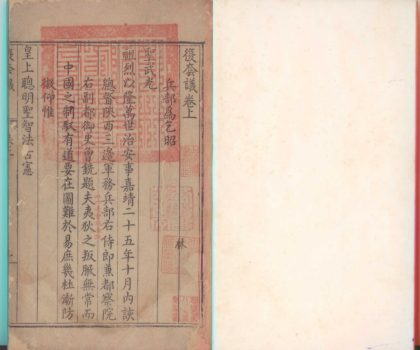 復套議卷上
兵部為乞昭
聖武光
烈以隆萬世治安事嘉靖二十五年十月內該
總督陝西三邊軍務兵部右侍郎兼都察院
右副都御史曾銑題夫夷狄之叛服無常而
中國之制馭有道要在圖難於易庶幾杜漸防
微仰惟
皇上聰明聖智法古憲
林